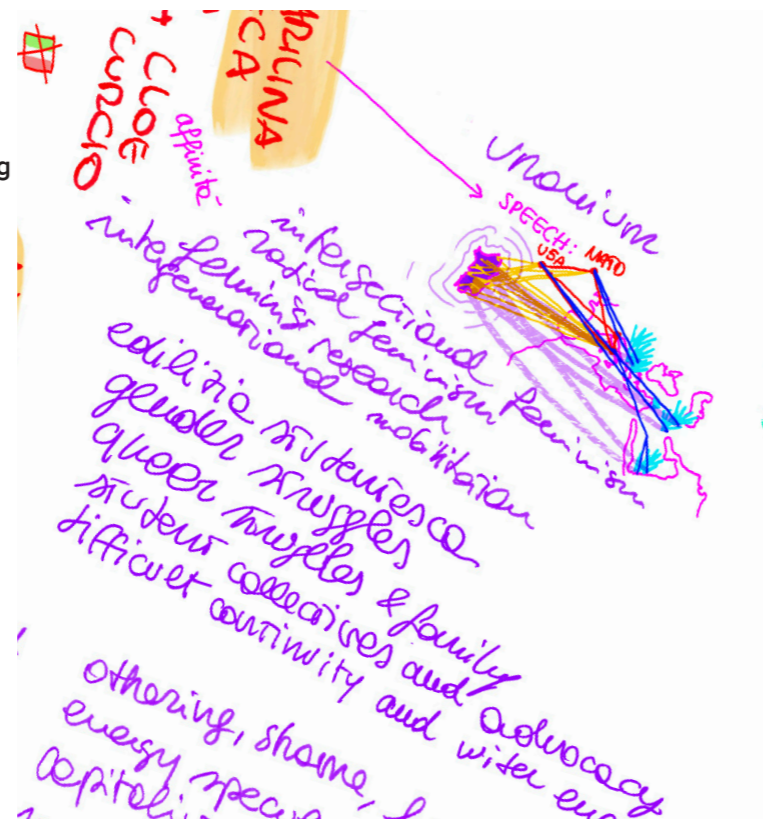 CLOE
CURCIO
affinità
uranium
SPEECH:
USA
NATO
intersectional feminism
radical feminism
feminist research
intergenerational mobilitation
edilizia studentesca
gender struggles
queer struggles & family
student collectives and advocacy
difficult continuity and with
othering, shame,
energy
g